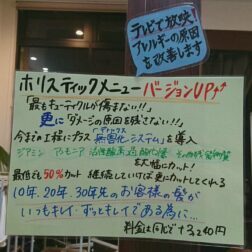 テレビで放映
アレルギーの原因
を改善します
ホリスティックメニュー バージョンUP↑↑
「最もキューティクルが傷まない!!」
更に「ダメージの原因を残さない!!」
今までの工程にプラス「無害化システム」を導入
ジアミン アンモニア 活性酸素
を大幅にカット!
最低でも50%カット 継続していけば更にカットしてくれる
10年、20年、30年先のお客様の髪が
いつもキレイ・ずっとキレイである為に…
料金は